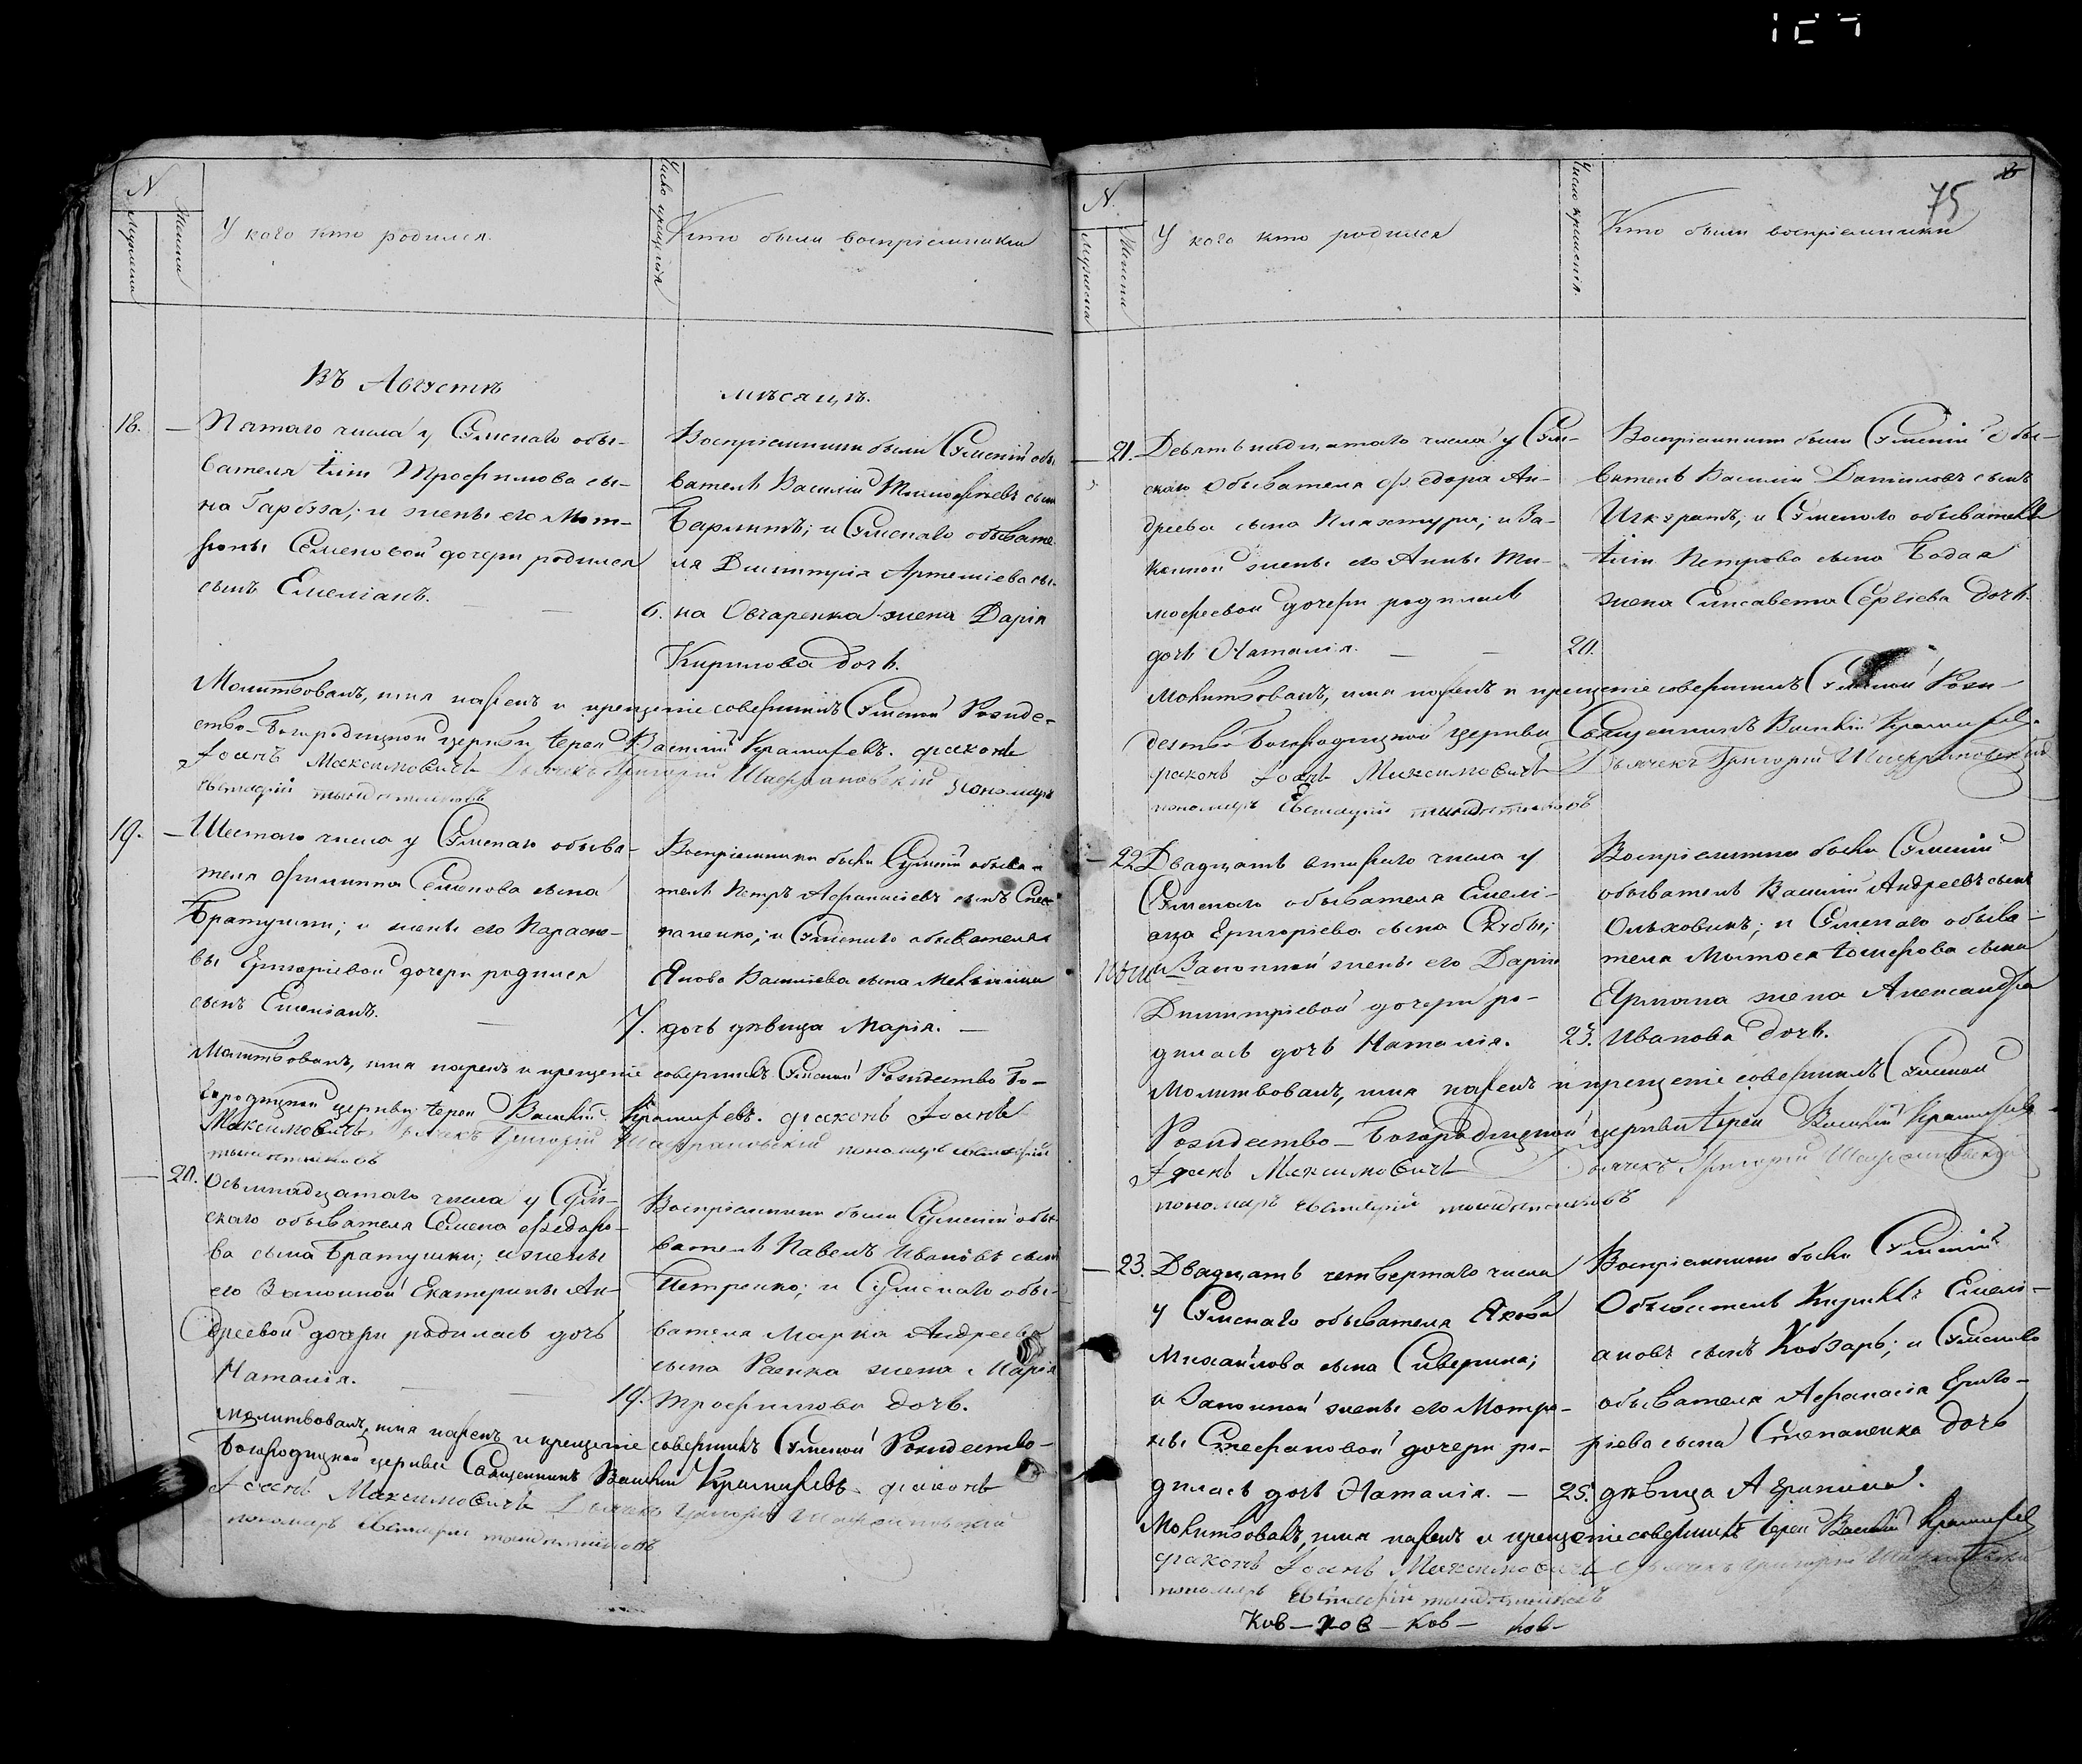 75
N
Мужеска
Женска
У кого кто родился.
Число крещенія
Кто были воспріемники
Въ Августѣ
мѣсяцѣ.
18. — Пятаго числа у Сумскаго обы-
вателя Трофимова сы-
на и жены его Мат-
роны Семеновой дочери родился
сынъ Емеліанъ. — —
Воспріемники были Сумскій обы
ватель Василій Тимофѣевъ сынъ
и Сумскаго обывате
ля Димитрія Артеміева сы-
6. на Овчаренка жена Дарія
Кирилова дочь.
Молитвовалъ, имя нарекъ и крещеніе совершилъ Сумской Рожде-
ство-Богородицкой церкви іерей Василій діаконъ
Іоаннъ Максимовичъ Дьячекъ Григорій Шафрановскій пономарь
19. — Шестаго числа у Сумскаго обыва-
теля Филиппа Семенова сына
Братушки; и жены его Параске-
вы Григоріевой дочери родился
сынъ Емеліанъ. —
Воспріемники были Сумскій обыва-
тель Петръ Афанасіевъ сынъ Сте-
паненко; и Сумскаго обывателя
Якова Василіева сына
7. дочь дѣвица Марія. —
Молитвовалъ, имя нарекъ и крещеніе совершилъ Сумской Рождество Бо-
городицкой церкви іерей Василій діаконъ Іоаннъ
Максимовичъ Дьячекъ Григорій Шафрановскій пономарь
— 20. Осьмнадцатаго числа у Сум-
скаго обывателя Семена Федоро-
ва сына Братушки; и жены
его Законной Екатерины Ан-
дреевой дочери родилась дочь
Наталія. — —
Воспріемники были Сумскій обы-
ватель Павелъ Ивановъ сынъ
Петренко; и Сумскаго обы-
вателя Марка Андреева
сына Раенка жена Марія
19. Трофимова дочь.
Молитвовалъ, имя нарекъ и крещеніе совершилъ Сумской Рождество-
Богородицкой церкви Священникъ Василій діаконъ
Іоаннъ Максимовичъ Дьячекъ Григорій Шафрановскій
пономарь
N.
Мужеска
Женска
У кого кто родился
Число крещенія.
Кто были воспріемники
— 21. Девятьнадцатаго числа у Сум-
скаго Обывателя Федора Ан-
дреева сына и За-
конной жены его Анны Ти-
мофеевой дочери родилась
дочь Наталія. — —
Воспріемники были Сумскій обы-
ватель Василій Даніиловъ сынъ
и Сумскаго обывателя
Петрова сына Бодая
жена Елисавета Сергіева дочь.
20.
Молитвовалъ, имя нарекъ и крещеніе совершилъ Сумской Рож-
дество Богородицкой церкви Священникъ Василій
діаконъ Іоаннъ Максимовичъ Дьячекъ Григорій Шафрановскій
пономарь
— 22. Двадцать втораго числа у
Сумскаго обывателя Емелі-
ана Григоріева сына Скубы;
и Законной жены его Даріи
Димитріевой дочери ро-
дилась дочь Наталія.
Воспріемники были Сумскій
обыватель Василій Андреевъ сынъ
Ольховикъ; и Сумскаго обыва-
теля сына
жена Александра
23. Иванова дочь.
Молитвовалъ, имя нарекъ и крещеніе совершилъ Сумской
Рождество-Богородицкой церкви іерей Василій
Іоаннъ Максимовичъ Дьячекъ Григорій Шафрановскій
пономарь
— 23. Двадцать четвертаго числа
у Сумскаго обывателя Якова
Михайлова сына Сиверина;
и Законной жены его Матро-
ны Стефановой дочери ро-
дилась дочь Наталія. —
Воспріемники были Сумскій
Обыватель Кириллъ Емелі-
ановъ сынъ Кобзарь; и Сумскаго
обывателя Афанасія Григо-
ріева сына Степаненка дочь
25. дѣвица Агрипина.
Молитвовалъ, имя нарекъ и крещеніе совершилъ іерей Василій
діаконъ Іоаннъ Максимовичъ Дьячекъ Григорій Шафрановскій
пономарь